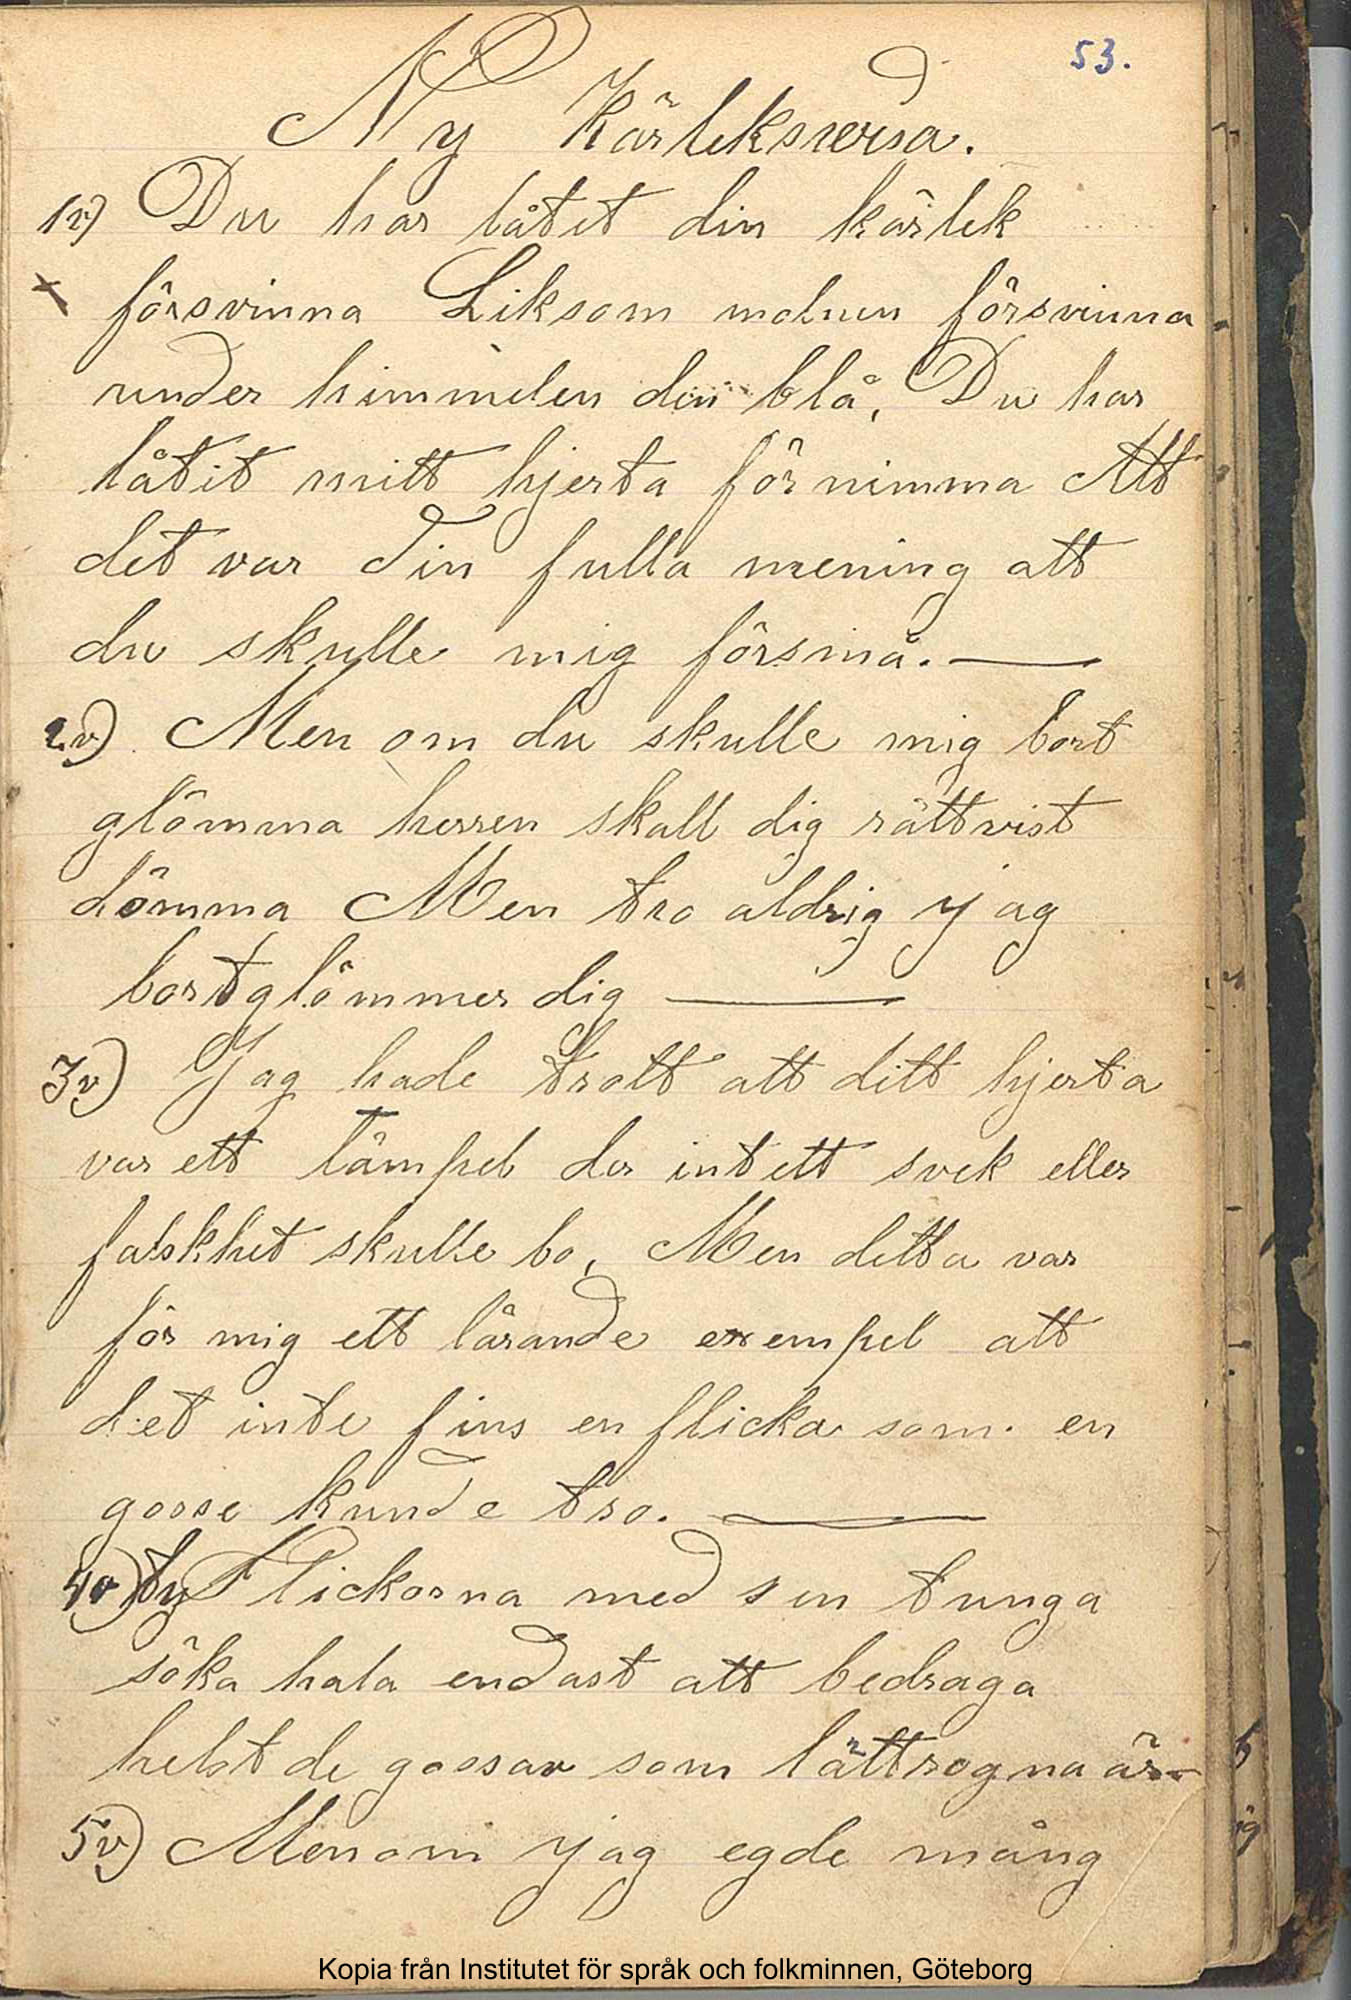 53.
Ny Kärleksversa.
1v) Du har låtet din kärlek
försvinna Liksom molnen försvinna
under himmelen den blå, Du har
låtit mitt hjerta förnimma Att
det var din fulla mening att
du skulle mig försmå.
2v) Men om du skulle mig bort
glömma herren skall dig rättvist
dömma Men tro aldrig jag
bortglömmer dig
3v) Jag hade trott att ditt hjerta
var ett tämpel der intett svek eller
falskhet skulle bo, Men detta var
för mig ett lärande exempel att
det inte fins en flicka som en
gosse kunde tro.
4v) ty Flickorna med sen tunga
söka hala endast att bedraga
helst de gossar som lättrogna är
5v) Men om jag egde mång
Kopia från Institutet för språk och folkminnen, Göteborg